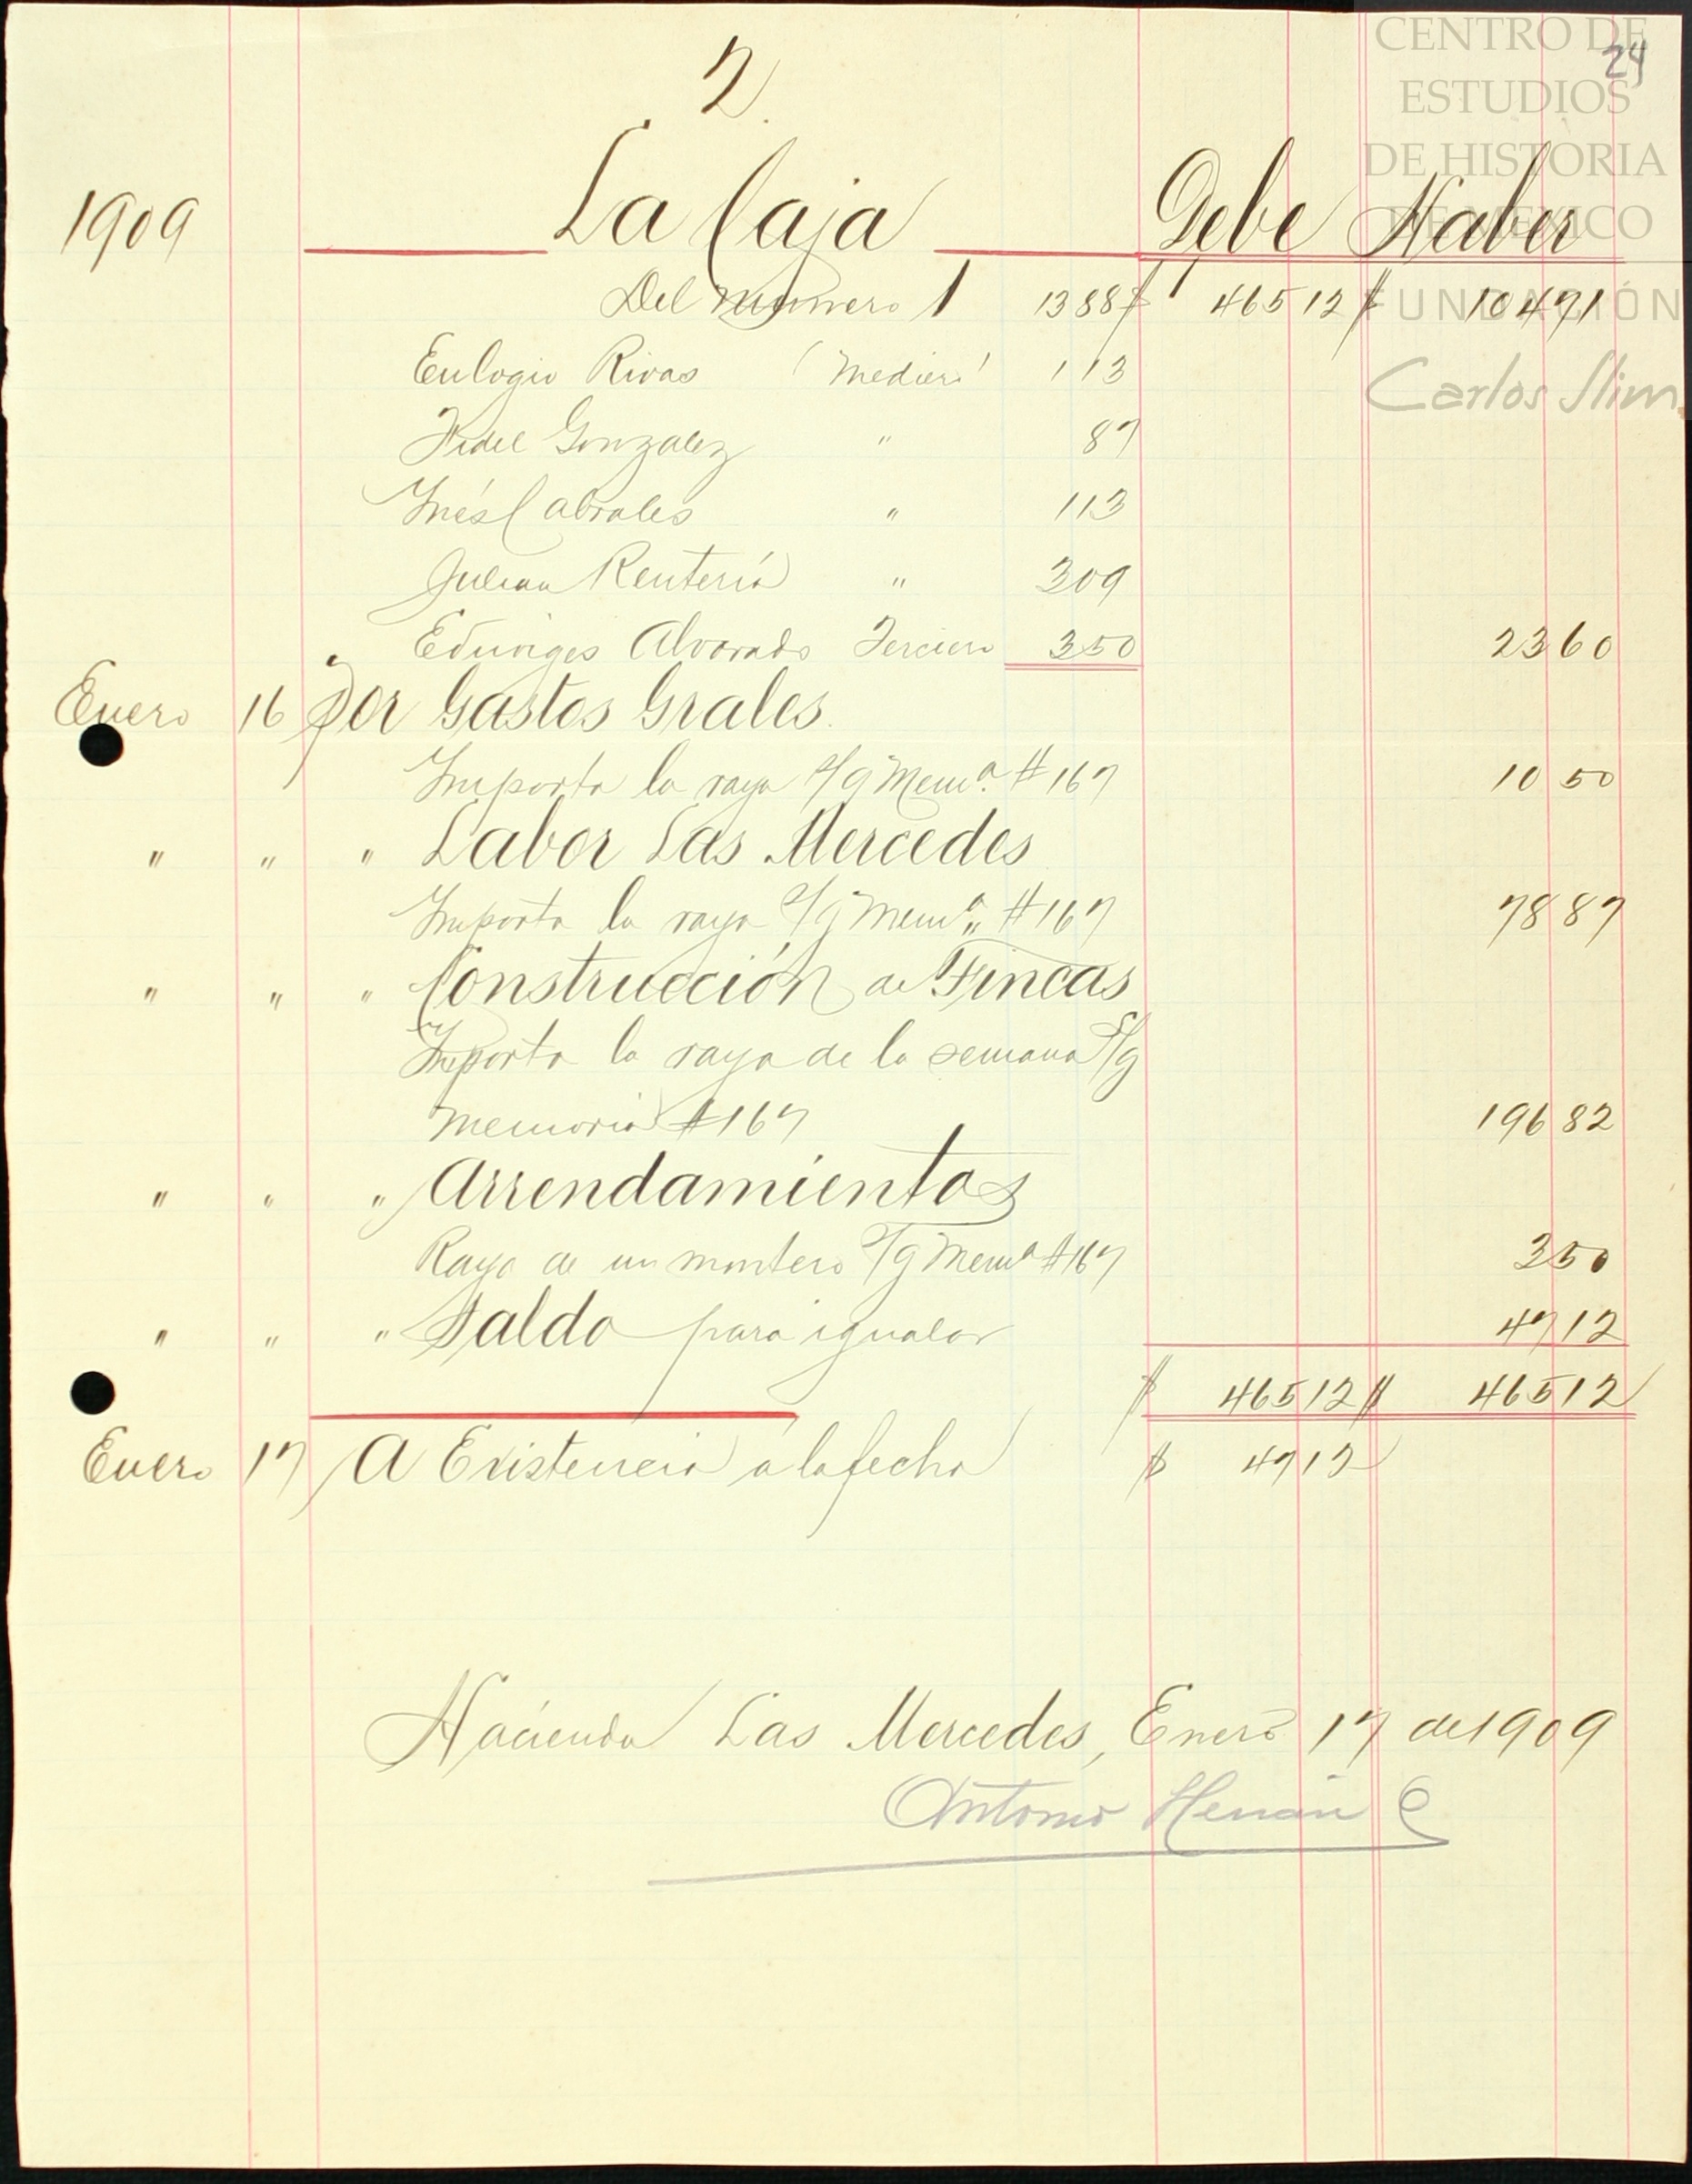 CENTRO DE
ESTUDIOS
DE HISTORIA
DE MEXICO
FUNDACIÓN
Carlos Slim.
24
2.
1909 La Caja Debe Haber
Del número 1 1388 $ 465 12 $ 104 71
Eulogio Rivas (Mediero) 113
Fidel Gonzalez " 87
Inés Cabrales " 113
Julian Rentería " 309
Eduviges Alvarado Terciero 350 23 60
Enero 16 Por Gastos Grales.
Importa la raya S/g Memª. #167 10 50
" " " Labor Las Mercedes
Importa la raya S/g Memª. #167 78 87
" " " Construcción de Fincas
Importa la raya de la semana S/g
Memoria #167 196 82
" " " Arrendamientos
Raya de un montero S/g Memª #167 3 50
" " " Saldo para igualar 47 12
$ 465 12 $ 465 12
Enero 17 A Existencia a la fecha $ 47 12
Hacienda Las Mercedes, Enero 17 de 1909
Antonio